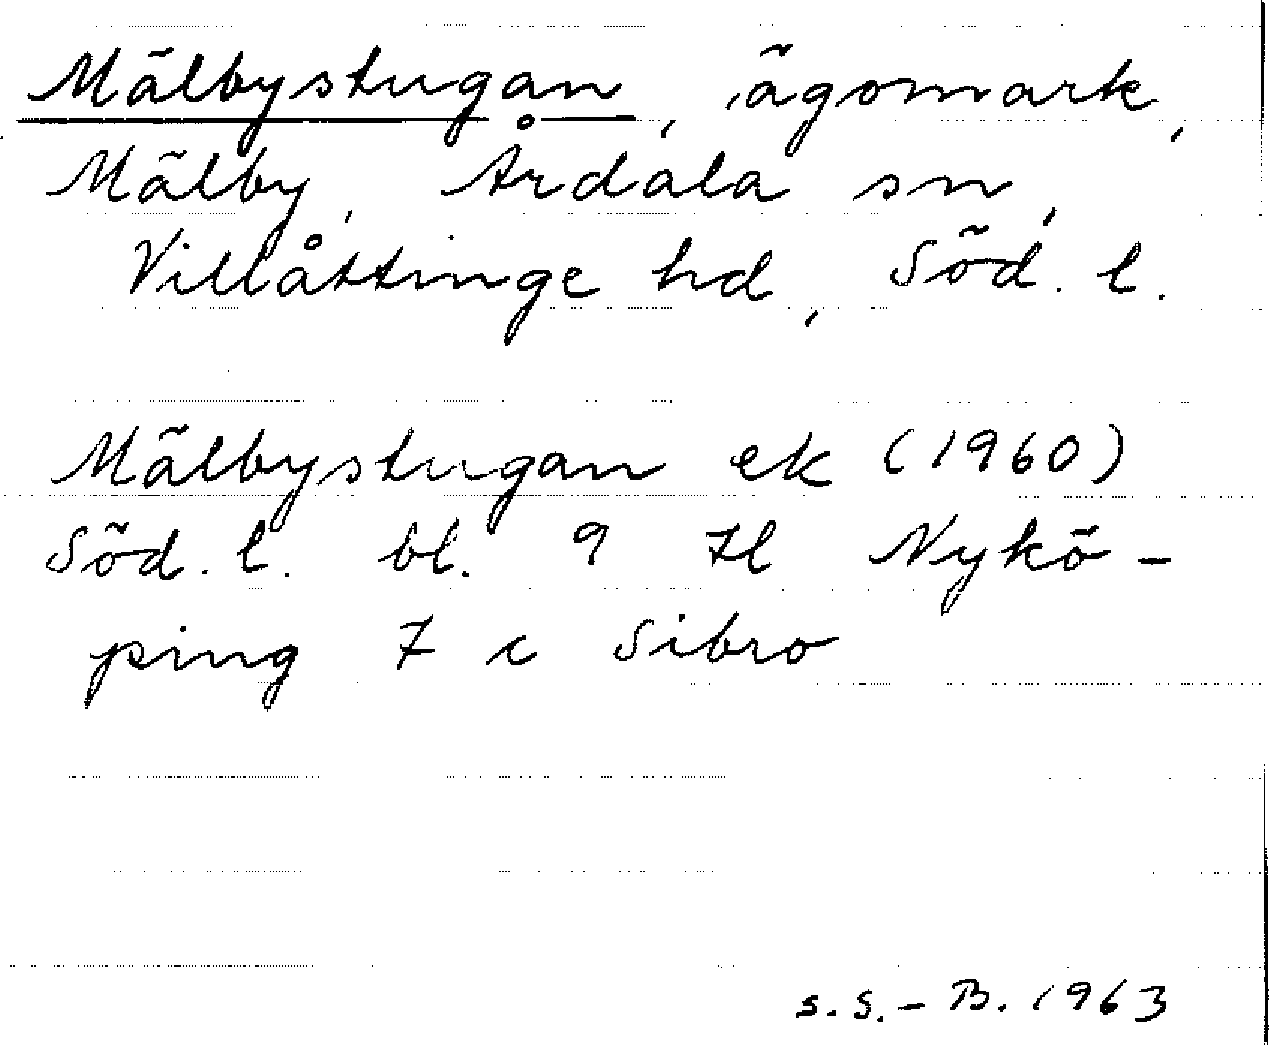 Mälbystugan, ägomark,
Mälby, Årdala sn,
Villåttinge hd, Söd. l.
Mälbystugan ek (1960)
Söd. l. bl. 9 Hl Nykö-
ping 7 c Sibro
s.S.-B. 1963